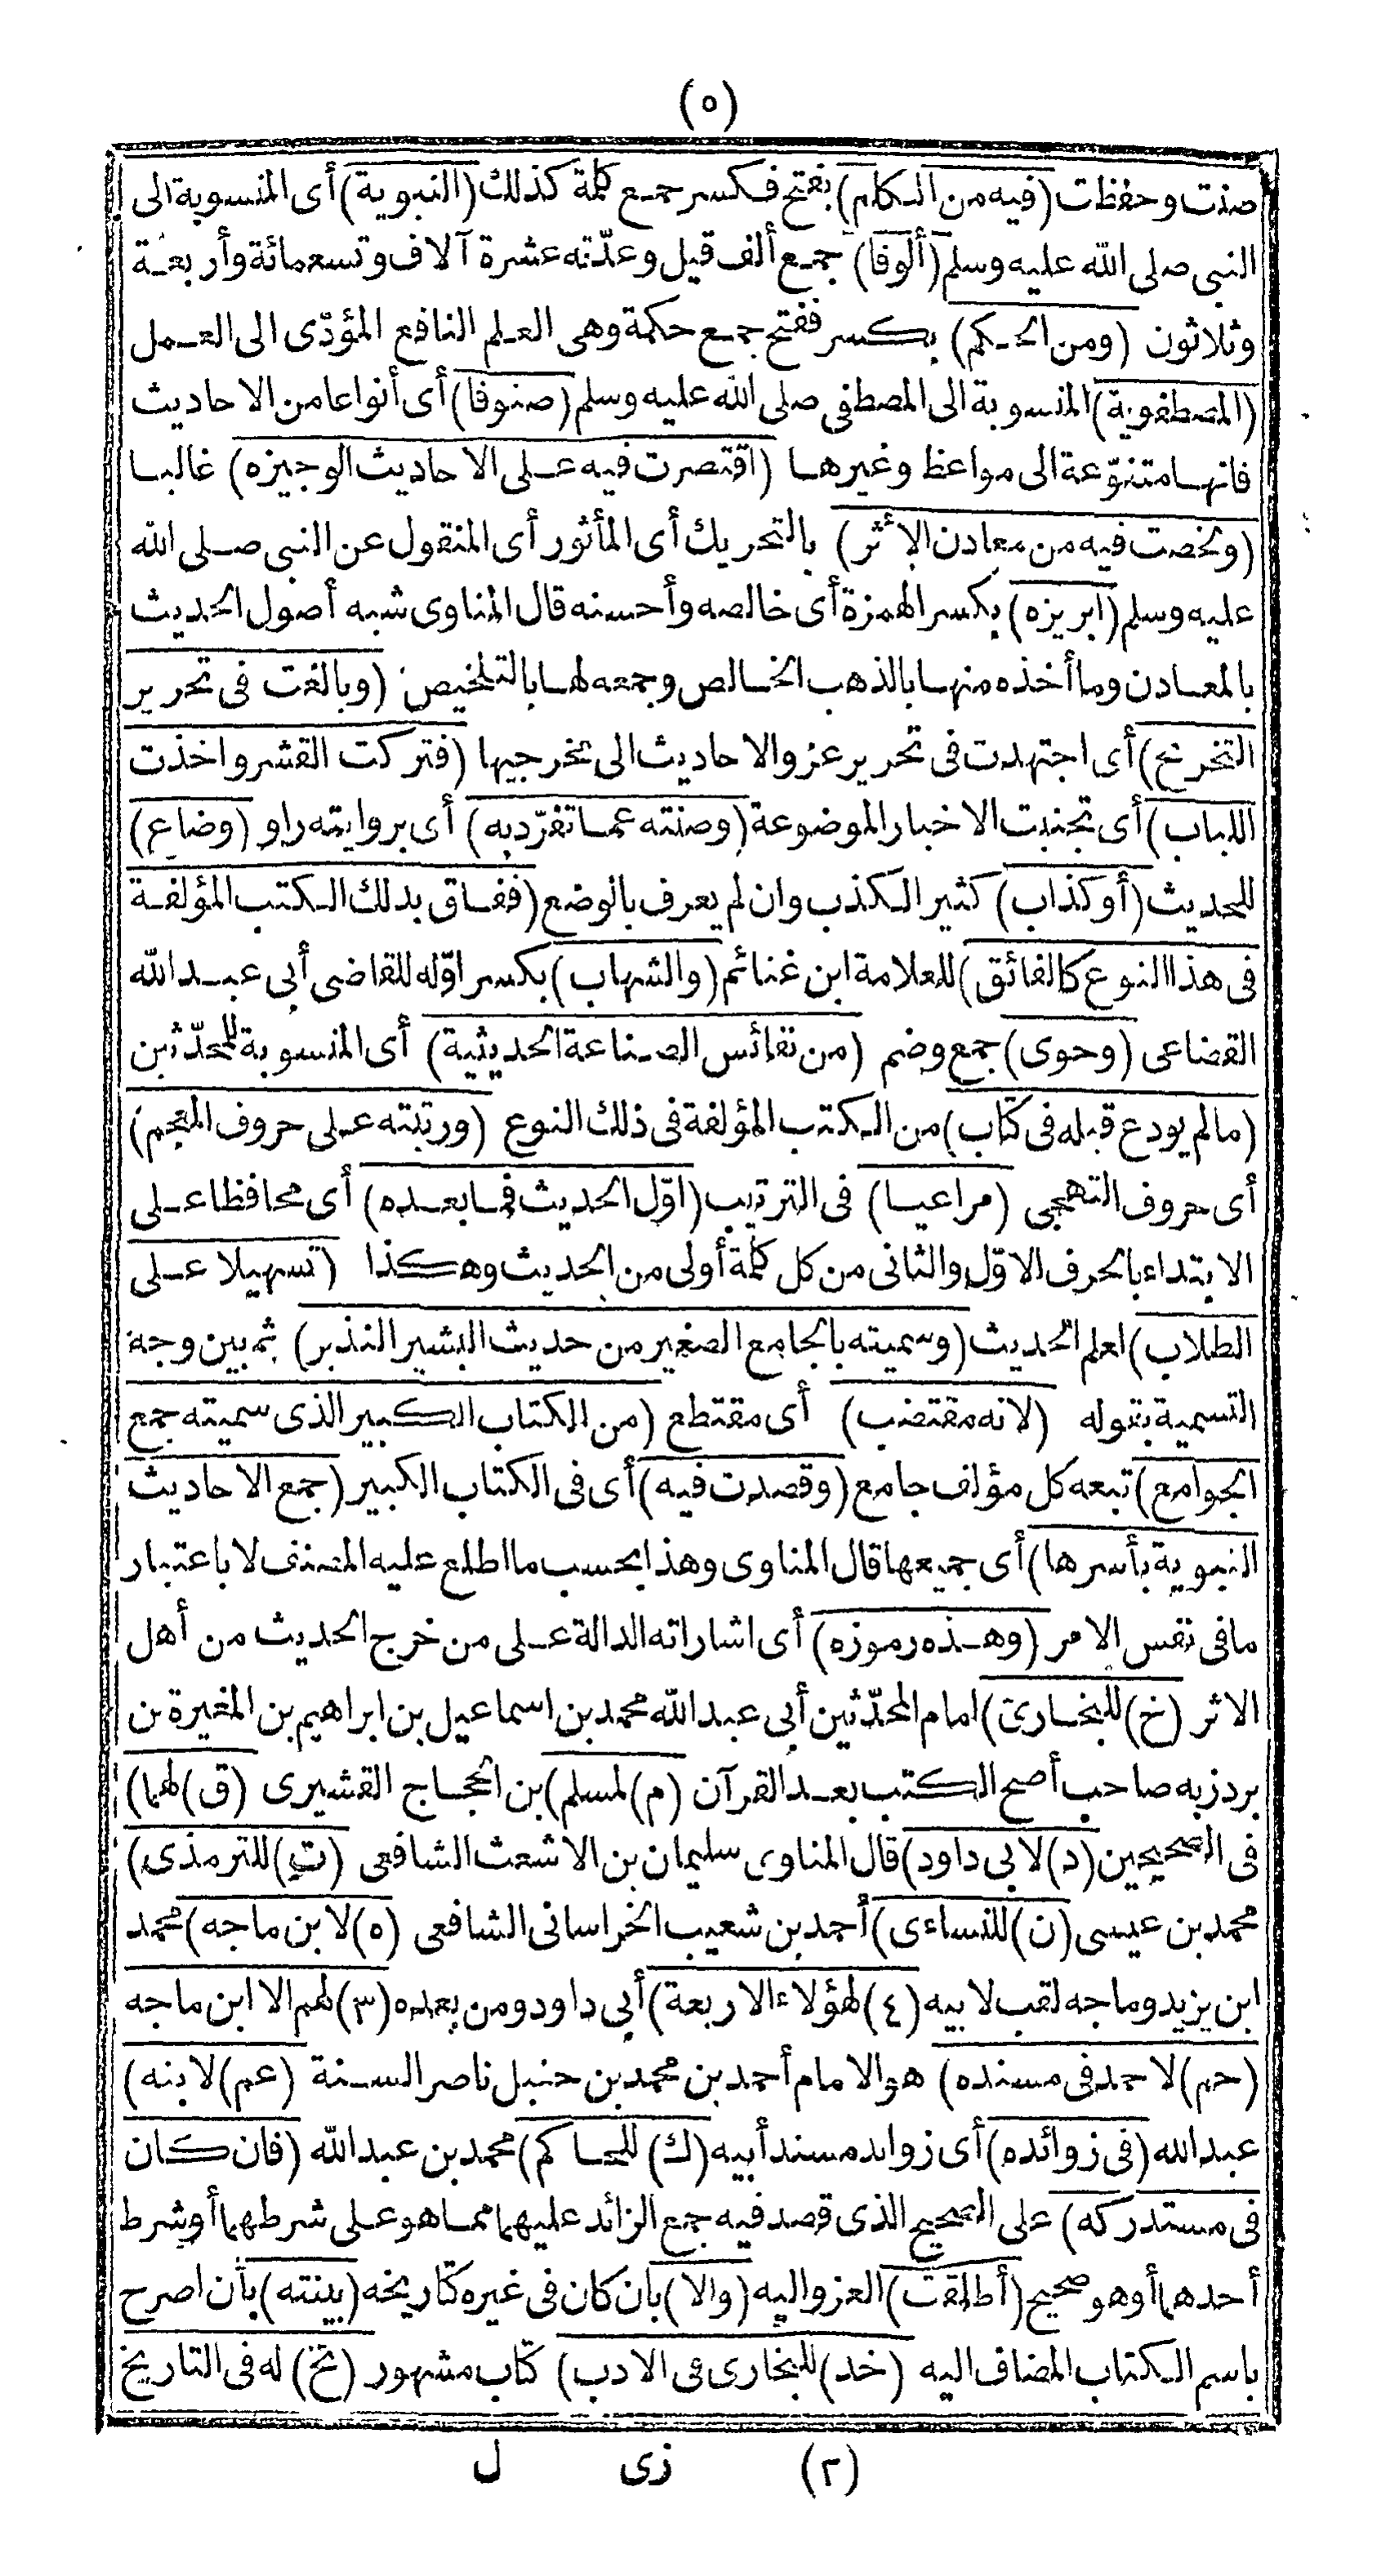 (٥)
صنت وحفظت (فيه من الكلم) بفتح فكسر جمع كلمة كذلك (النبوية) أى المنسوبة الى
النبى صلى الله عليه وسلم (ألوفا) جمع ألف قيل وعدّته عشرة آلاف وتسعمائة وأربعة
وثلاثون (ومن الحكم) بكسر ففتح جمع حكمة وهى العلم النافع المؤدّى الى العمل
(المصطفوية) المنسوبة الى المصطفى صلى الله عليه وسلم (صنوفا) أى أنواعا من الاحاديث
فانها متنوّعة الى مواعظ وغيرها (اقتصرت فيه على الاحاديث الوجيزه) غالبا
(ولخصت فيه من معادن الأثر) بالتحريك أى المأثور أى المنقول عن النبى صلى الله
عليه وسلم (ابريزه) بكسر الهمزة أى خالصه وأحسنه قال المناوى شبه أصول الحديث
بالمعادن وما أخذه منها بالذهب الخالص وجمعه لها بالتلخيص (وبالغت فى تحرير
التخريج) أى اجتهدت فى تحرير عزو الاحاديث الى مخرجيها (فتركت القشر واخذت
اللباب) أى تجنبت الاخبار الموضوعة (وصنته عما تفرّد به) أى بروايته راو (وضاع)
للحديث (أو كذاب) كثير الكذب وان لم يعرف بالوضع (ففاق بذلك الكتب المؤلفة
فى هذا النوع كالفائق) للعلامة ابن غنائم (والشهاب) بكسر اوّله للقاضى أبى عبد الله
القضاعى (وحوى) جمع وضم (من نفائس الصناعة الحديثية) أى المنسوبة للمحدّثين
(مالم يودع قبله فى كتاب) من الكتب المؤلفة فى ذلك النوع (ورتبته على حروف المعجم)
أى حروف التهجى (مراعيا) فى الترتيب (اوّل الحديث فما بعده) أى محافظا على
الابتداء بالحرف الاوّل والثانى من كل كلمة أولى من الحديث وهكذا (تسهيلا على
الطلاب) لعلم الحديث (وسميته بالجامع الصغير من حديث البشير النذير) ثم بين وجه
التسمية بقوله (لانه مقتضب) أى مقتطع (من الكتاب الكبير الذى سميته جمع
الجوامع) تبعه كل مؤلف جامع (وقصدت فيه) أى فى الكتاب الكبير (جمع الاحاديث
النبوية بأسرها) أى جميعها قال المناوى وهذا بحسب ما اطلع عليه المصنف لا باعتبار
ما فى نفس الامر (وهذه رموزه) أى اشاراته الدالة على من خرج الحديث من أهل
الاثر (خ) للبخارى) امام المحدّثين أبى عبد الله محمد بن اسماعيل بن ابراهيم بن المغيرة بن
بردزبه صاحب أصح الكتب بعد القرآن (م) لمسلم) بن الحجاج القشيرى (ق) لهما)
فى الصحيحين (د) لابى داود) قال المناوى سليمان بن الاشعث الشافعى (ت) للترمذى)
محمد بن عيسى (ن) للنساءى) أحمد بن شعيب الخراسانى الشافعى (ه) لابن ماجه) محمد
ابن يزيد وماجه لقب لابيه (٤) لهؤلاء الاربعة) أبى داود ومن بعده (٣) لهم الا ابن ماجه
(حم) لاحمد فى مسنده) هو الامام أحمد بن محمد بن حنبل ناصر السنة (عم) لابنه)
عبد الله (فى زوائده) أى زوايد مسند أبيه (ك) للحاكم) محمد بن عبد الله (فان كان
فى مستدركه) على الصحيح الذى قصد فيه جمع الزائد عليهما مما هو على شرطهما أو شرط
أحدهما أو هو صحيح (أطلقت) العزو اليه (والا) بان كان فى غيره كتاريخه (بينته) بأن اصرح
باسم الكتاب المضاف اليه (خد) للبخارى فى الادب) كتاب مشهور (تخ) له فى التاريخ
(٢) زى ل